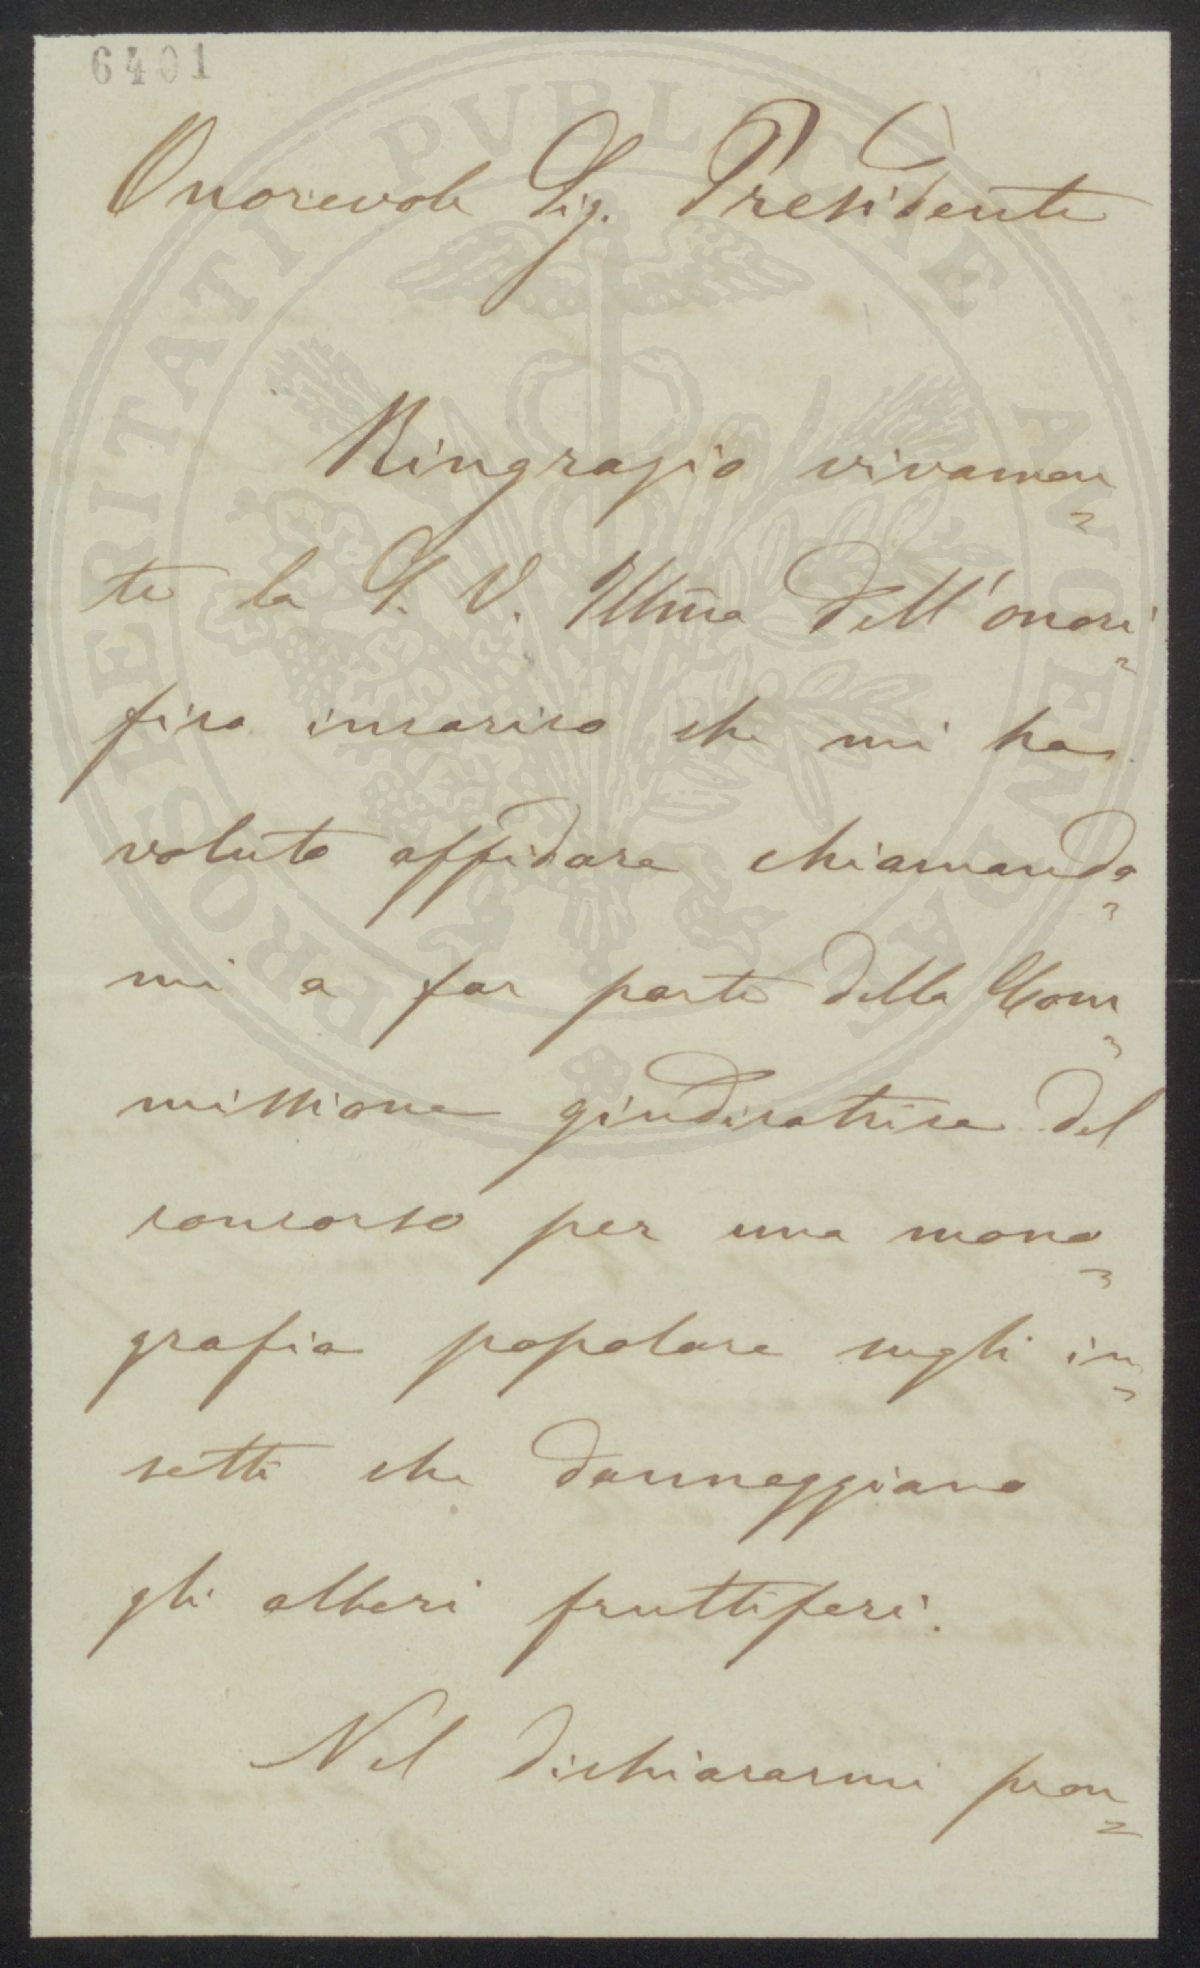 6401
Onorevole Sig. Presidente
Ringrazio vivamen=
te la S. V. Illma dell'onori=
fico incarico che mi ha
voluto affidare chiamando=
mi a far parte della Com=
missione giudicatrice del
concorso per una mono=
grafia popolare sugli in=
setti che danneggiano
gli alberi fruttiferi.
Nel dichiararmi pron=
PROSPERITATI PVBLICAE AVGENDAE